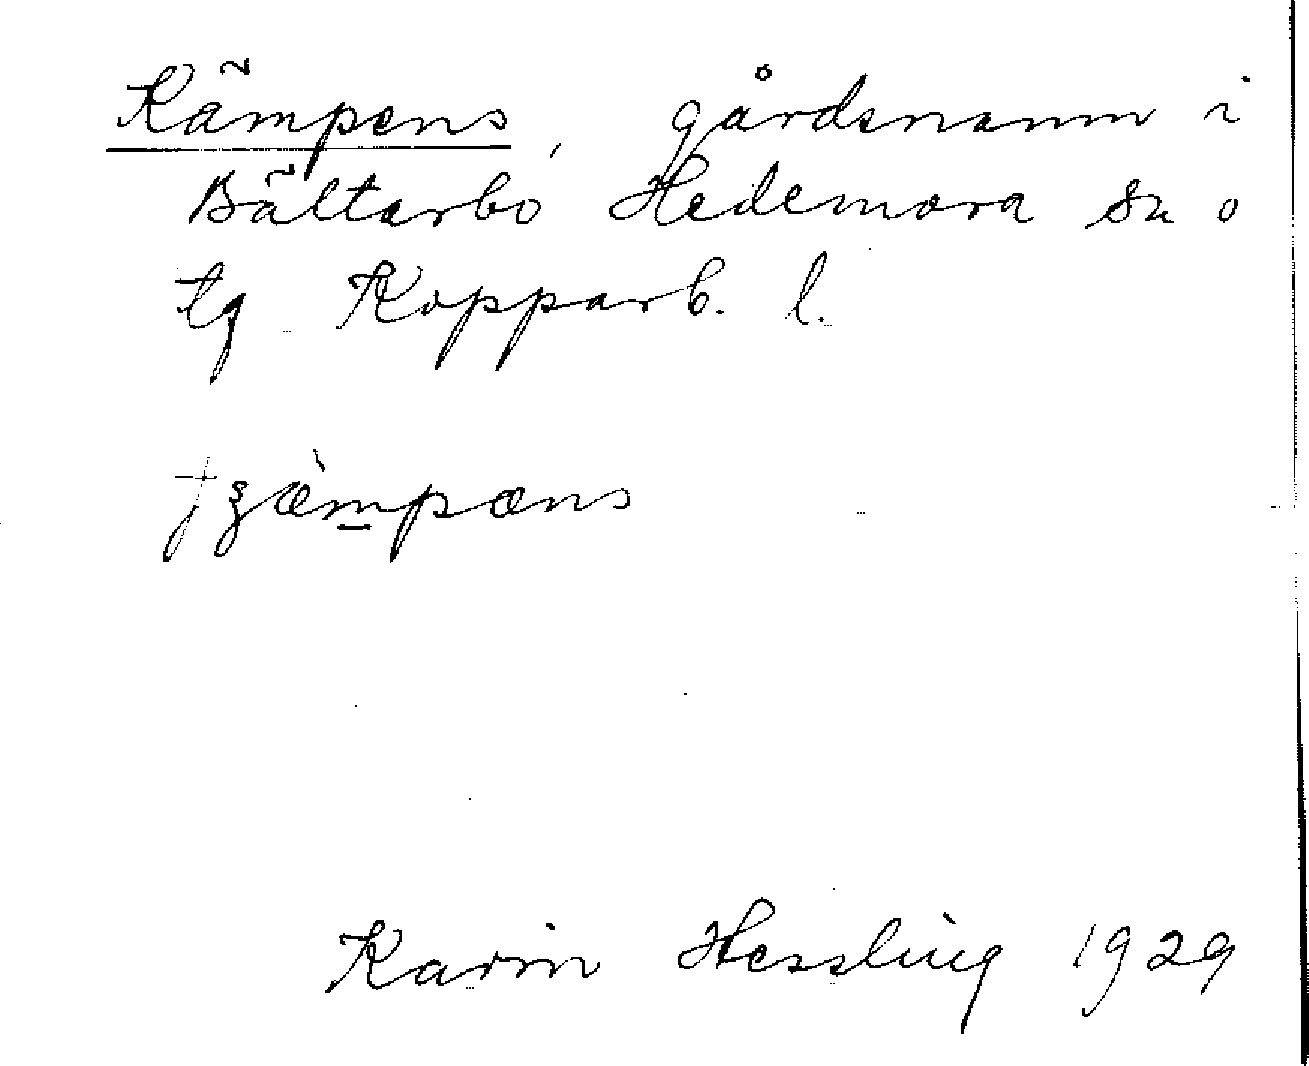 Kämpens, gårdsnamn i
Bältarbo Hedemora sn o
tg Kopparb. l.
ꞇȥæ̀m̲pæns
Karin Hessling 1929